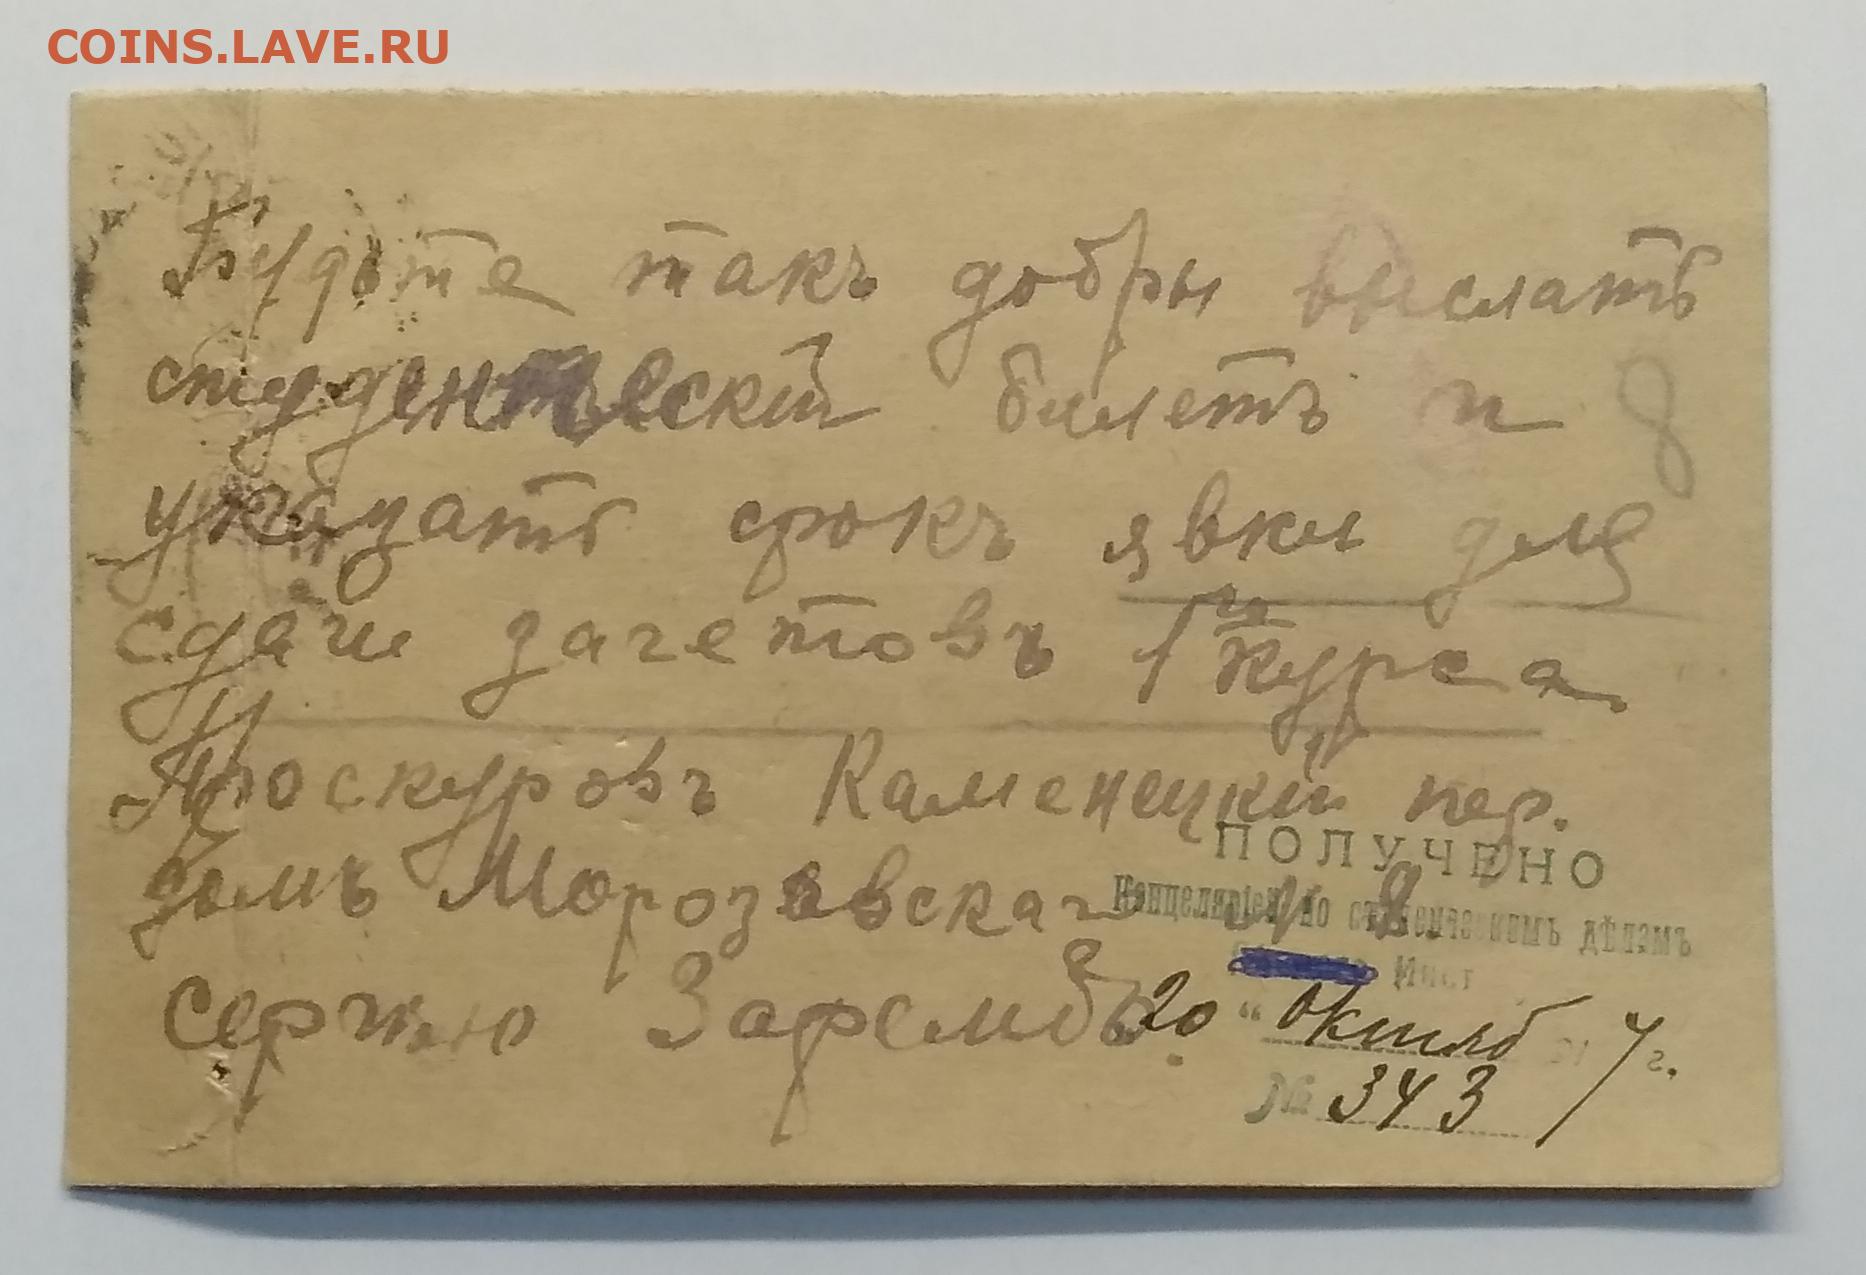 COINS.LAVE.RU
Будьте такъ добры выслать
студентческій билетъ и
указать срокъ явки для
сдачи зачетовъ 1го курса
Проскуровъ Каменецкій пер.
домъ Морозовскаго № 8.
Сергѣю Зарембѣ.
8
ПОЛУЧЕНО
Канцеляріей по студенческимъ дѣламъ
Инст
20 " октяб 7 г.
№ 343